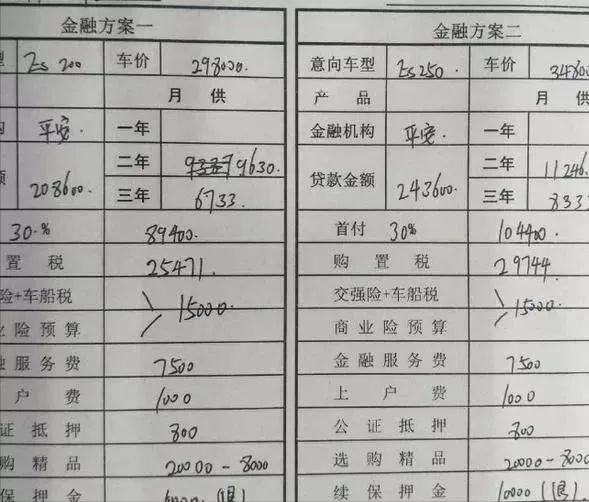 金融方案一 金融方案二
型 Es 200 车价 298000. 意向车型 Es250. 车价 34800
月 供 产 品 月 供
构 平安. 一年 金融机构 平安. 一年
额 208600. 二年 9630. 贷款金额 243600. 二年 11246.
三年 6733. 三年 8333
30% 89400. 首付 30% 104400.
置 税 25471. 购 置 税 29744.
险+车船税 15000. 交强险+车船税 15000.
业险预算 商业险预算
融服务费 7500 金融服务费 7500
户 费 1000 上 户 费 1000
证抵押 800 公证抵押 800
购精品 20000-8000 选购精品 20000-8000
保押金 (退) 续保押金 10000 (退)